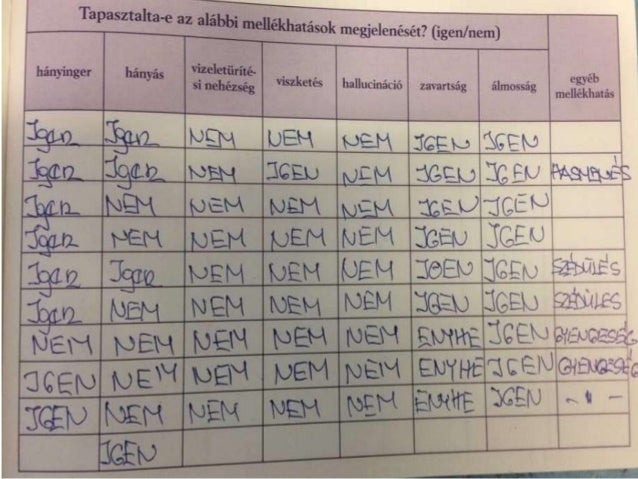 Tapasztalta-e az alábbi mellékhatások megjelenését? (igen/nem)
hányinger hányás vizeletürítési nehézség viszketés hallucináció zavartság álmosság egyéb mellékhatás
Igen Igen NEM NEM NEM IGEN IGEN
Igen Igen NEM IGEN NEM IGEN IGEN HASMENÉS
Igen NEM NEM NEM NEM IGEN IGEN
Igen NEM NEM NEM NEM IGEN IGEN
Igen Igen NEM NEM NEM IGEN IGEN SZÉDÜLÉS
Igen NEM NEM NEM NEM IGEN IGEN SZÉDÜLES
NEM NEM NEM NEM NEM ENYHE IGEN GYENGESÉG
IGEN NEM NEM NEM NEM ENYHE IGEN GYENGESÉG
IGEN NEM NEM NEM NEM ENYHE IGEN - " -
IGEN